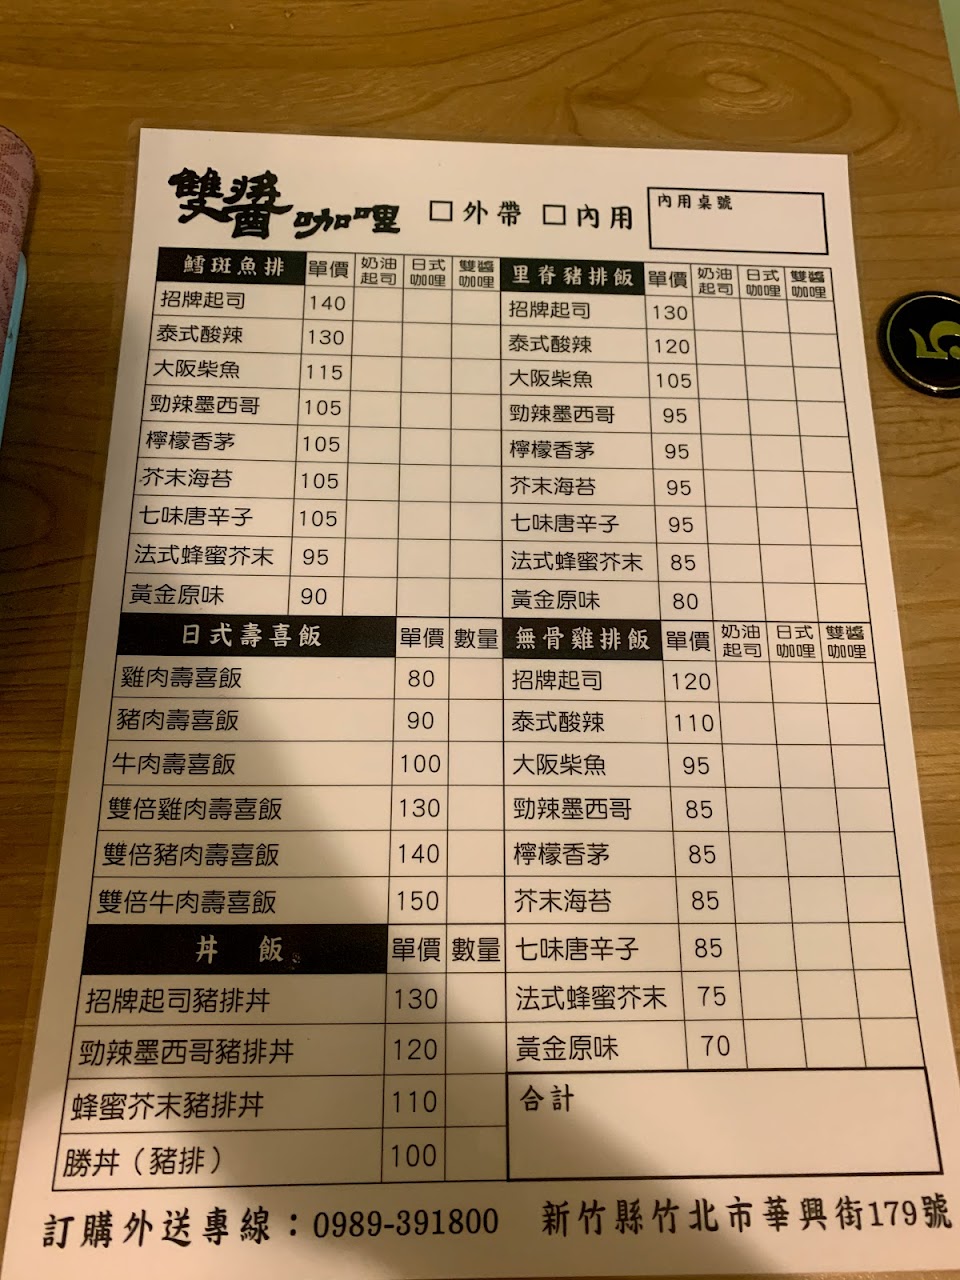 雙醬咖哩 □外帶 □內用 內用桌號
鱈斑魚排 單價 奶油起司 日式咖哩 雙醬咖哩
招牌起司 140
泰式酸辣 130
大阪柴魚 115
勁辣墨西哥 105
檸檬香茅 105
芥末海苔 105
七味唐辛子 105
法式蜂蜜芥末 95
黃金原味 90
里脊豬排飯 單價 奶油起司 日式咖哩 雙醬咖哩
招牌起司 130
泰式酸辣 120
大阪柴魚 105
勁辣墨西哥 95
檸檬香茅 95
芥末海苔 95
七味唐辛子 95
法式蜂蜜芥末 85
黃金原味 80
日式壽喜飯 單價 數量
雞肉壽喜飯 80
豬肉壽喜飯 90
牛肉壽喜飯 100
雙倍雞肉壽喜飯 130
雙倍豬肉壽喜飯 140
雙倍牛肉壽喜飯 150
丼飯 單價 數量
招牌起司豬排丼 130
勁辣墨西哥豬排丼 120
蜂蜜芥末豬排丼 110
勝丼（豬排） 100
無骨雞排飯 單價 奶油起司 日式咖哩 雙醬咖哩
招牌起司 120
泰式酸辣 110
大阪柴魚 95
勁辣墨西哥 85
檸檬香茅 85
芥末海苔 85
七味唐辛子 85
法式蜂蜜芥末 75
黃金原味 70
合計
訂購外送專線：0989-391800 新竹縣竹北市華興街179號
5